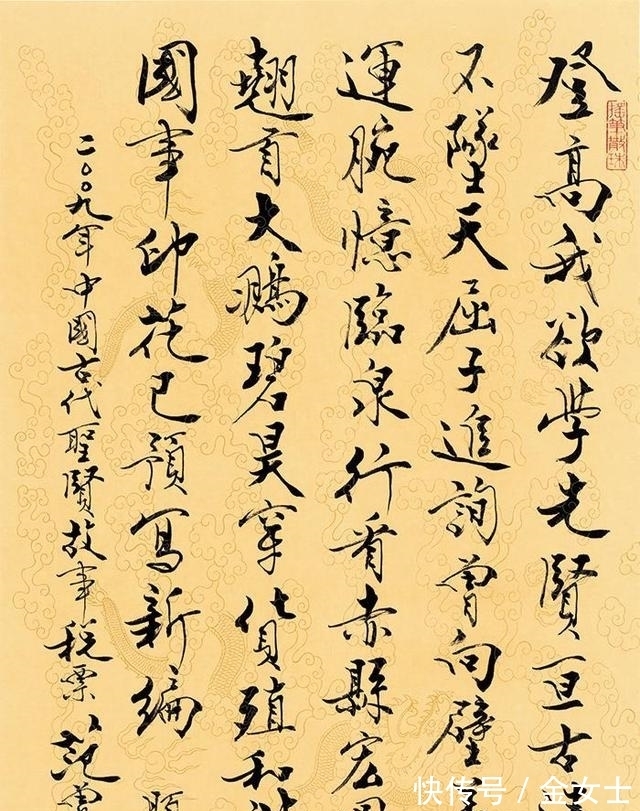 登高我欲學先賢亘古
不墜天屈子進詢曾向壁
運腕憶臨泉行看赤縣宏
翹首大鵬碧昊穿貨殖和
國事印花已預寫新編
二〇〇九年中國古代聖賢故事税票 范曾
快传号/金女士